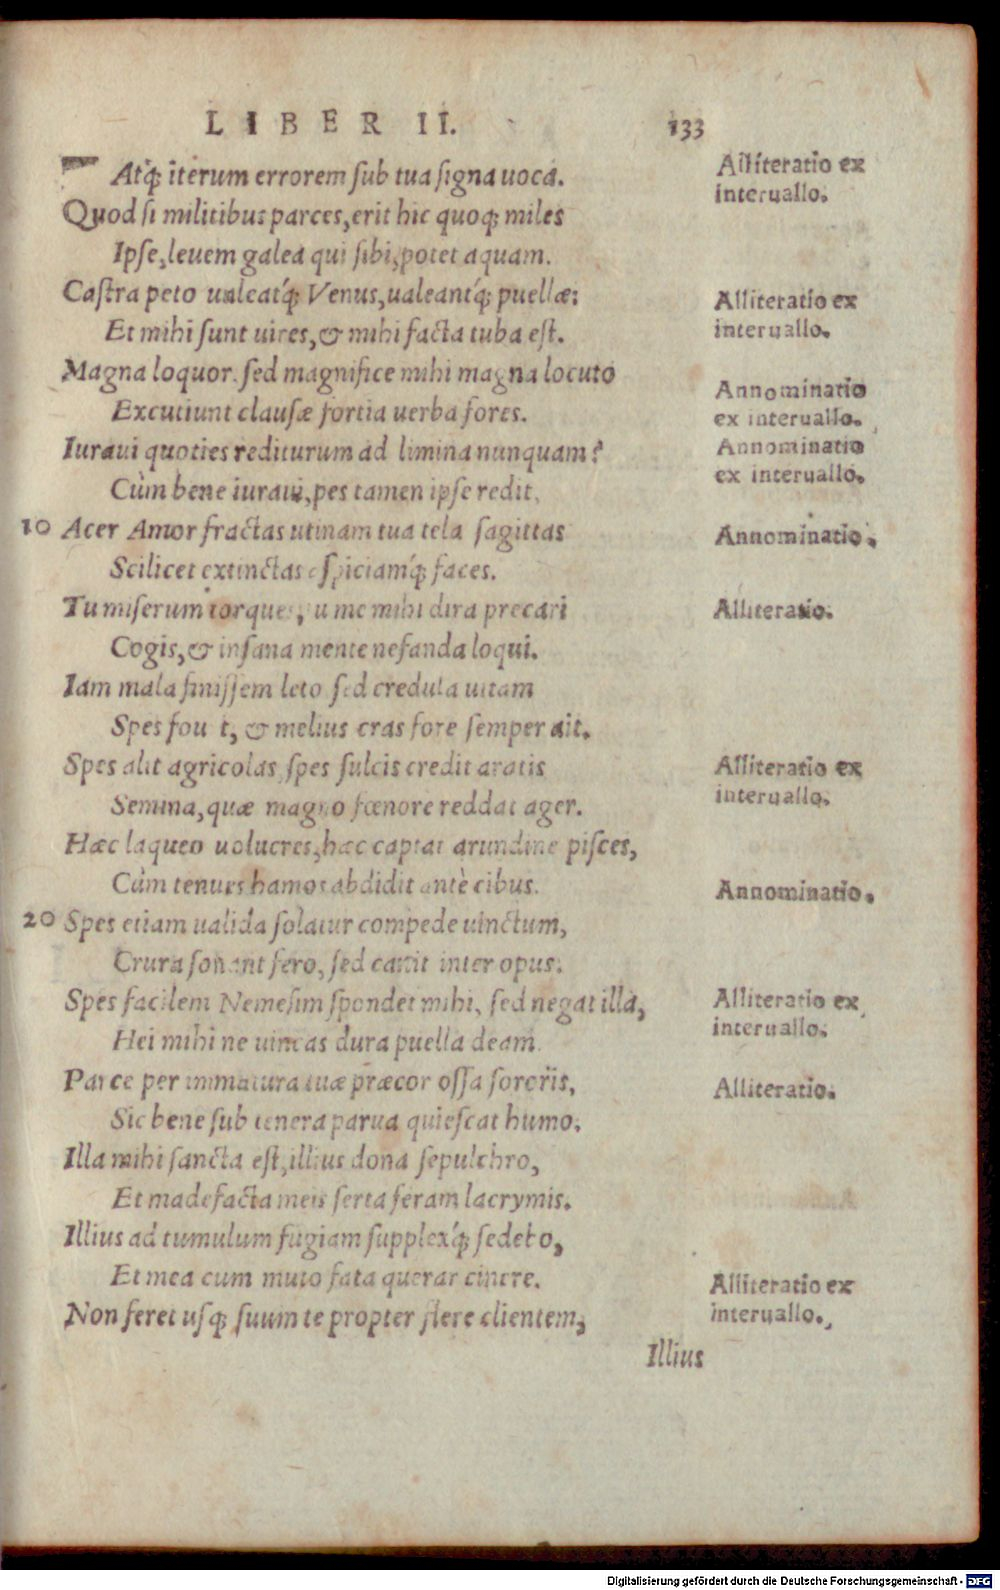 LIBER II. 133
Atq́; iterum errorem sub tua signa uoca.
Alliteratio ex
interuallo.
Quod si militibus parces, erit hic quoq; miles
Ipse, leuem galea qui sibi, potet aquam.
Castra peto ualeatq́; Venus, ualeantq́; puellæ:
Alliteratio ex
interuallo.
Et mihi sunt uires, & mihi facta tuba est.
Magna loquor. sed magnifice mihi magna locuto
Annominatio
ex interuallo.
Excutiunt clausæ fortia uerba fores.
Iuraui quoties rediturum ad limina nunquam?
Annominatio
ex interuallo.
Cùm bene iuraui, pes tamen ipse redit.
10 Acer Amor fractas utinam tua tela sagittas
Annominatio.
Scilicet extinctas aspiciamq́; faces.
Tu miserum torques, tu me mihi dira precari
Alliteratio.
Cogis, & insana mente nefanda loqui.
Iam mala finissem leto sed credula uitam
Spes fou t, & melius cras fore semper ait.
Spes alit agricolas, spes sulcis credit aratis
Alliteratio ex
interuallo.
Semina, quæ magno fœnore reddat ager.
Hæc laqueo uolucres, hæc captat arundine pisces,
Cùm tenues hamos abdidit antè cibus.
Annominatio.
20 Spes etiam ualida solatur compede uinctum,
Crura sonant fero, sed canit inter opus.
Spes facilem Nemesim spondet mihi, sed negat illa,
Alliteratio ex
interuallo.
Hei mihi ne uincas dura puella deam.
Parce per immatura tuæ præcor ossa sororis,
Alliteratio.
Sic bene sub tenera parua quiescat humo.
Illa mihi sancta est, illius dona sepulchro,
Et madefacta meis serta feram lacrymis.
Illius ad tumulum fugiam supplexq́; sedebo,
Et mea cum muto fata querar cinere.
Alliteratio ex
interuallo.
Non feret usq; suum te propter flere clientem,
Illius
Digitalisierung gefördert durch die Deutsche Forschungsgemeinschaft - DFG